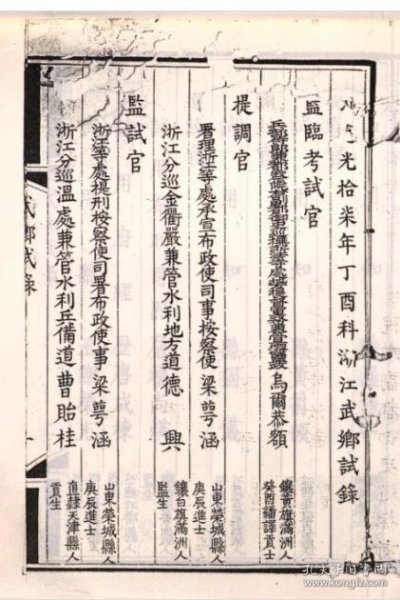 光拾柒年丁酉科浙江武鄉試錄
監臨考試官
兵部 烏爾恭額
鑲黃旗滿洲人
癸酉繙譯貢士
提調官
署理浙江等處承宣布政使司事按察使梁萼涵
山東榮城縣人
庚辰進士
浙江分巡金衢嚴兼管水利地方道德興
鑲白旗滿洲人
監生
監試官
浙江等處提刑按察使司署布政使事梁萼涵
山東榮城縣人
庚辰進士
浙江分巡溫處兼管水利兵備道曹貽桂
直隸天津縣人
貢生
武鄉試錄
孔夫子旧书网
www.kongfz.com